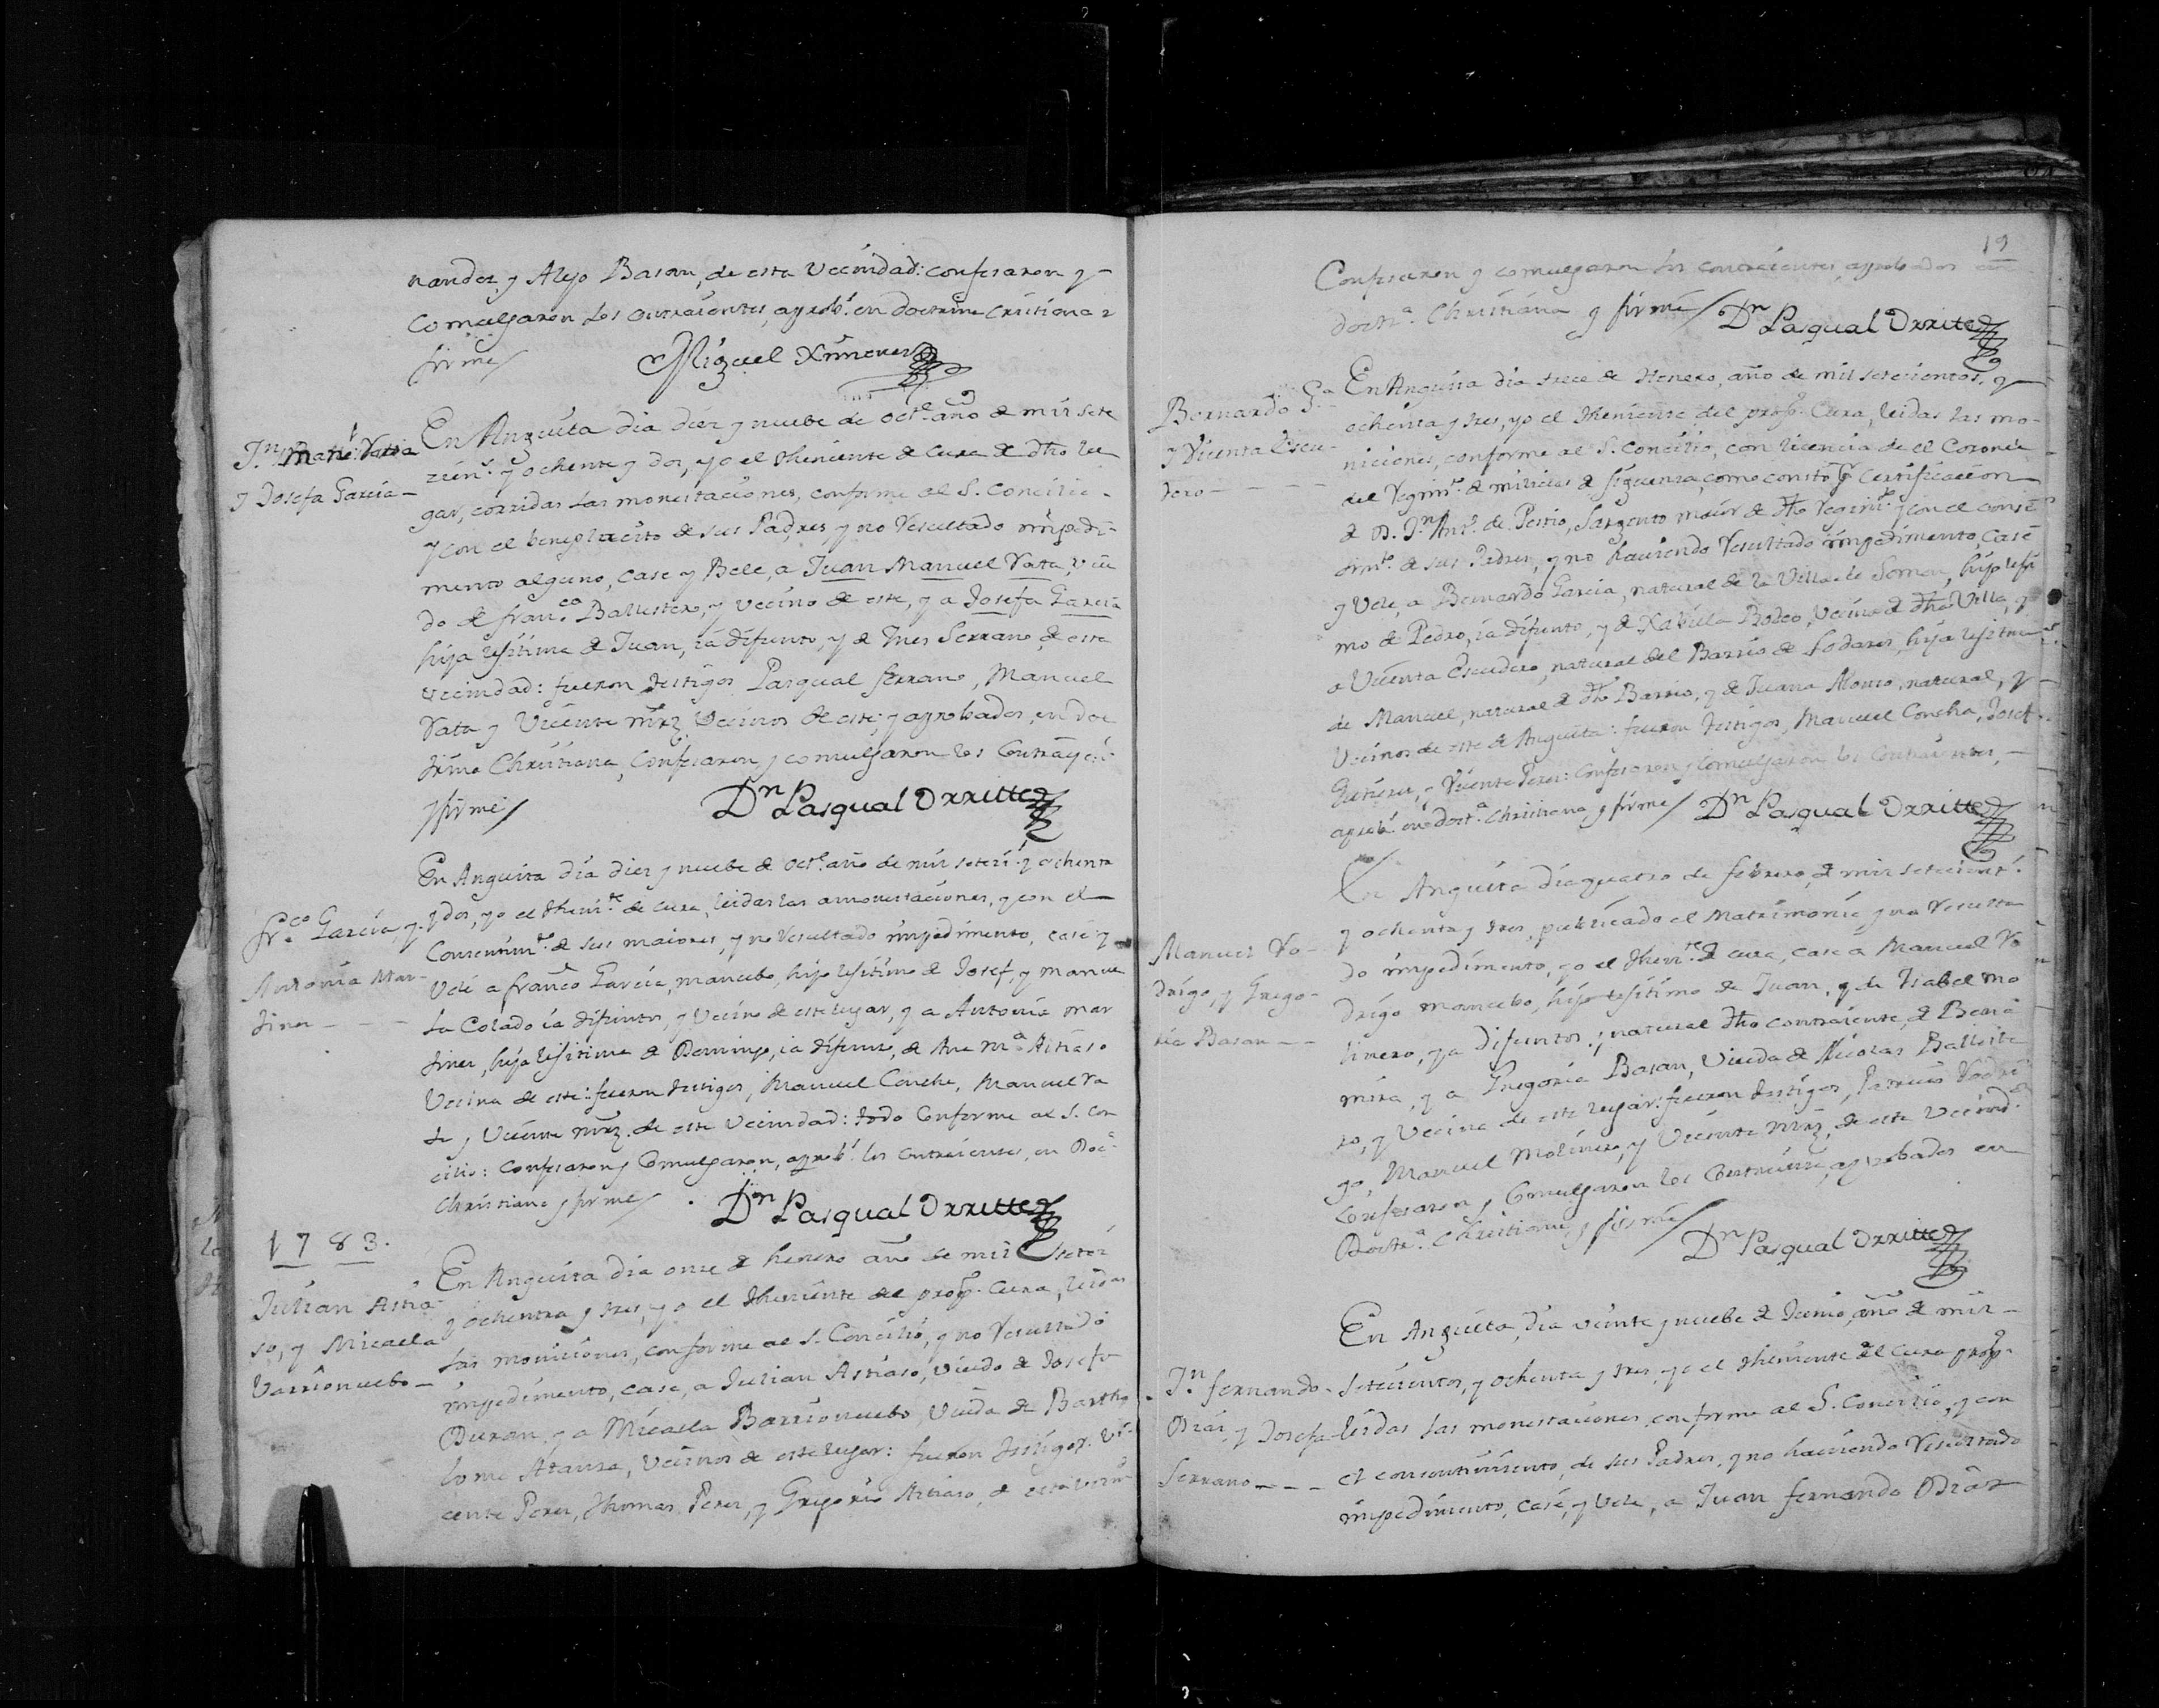 nandez, y Alejo Basan, de esta Vecindad: confesaron y
Comulgaron los contraientes, aprob.s en doctrina cristiana y
firme/
Miguel Ximenez
Jn Man.l Vata
y Josefa Garcia
En Anguita dia diez y nuebe de oct.e año de mil sete
zien.s y ochenta y dos, yo el theniente de Cura de dho lu
gar, corridas las monestaciones, conforme al S. Concilio
y con el beneplacito de sus Padres, y no Resultado impedi-
mento alguno, case y Bele, a Juan Manuel Vata, viu
do de fran.ca Ballestero, y vecino de este, y a Josefa Garcia
hija lejitima de Juan, ia difunto, y de Ines Serrano, de esta
vecindad: fueron testigos Pasqual Serrano, Manuel
Vata y Vicente mrz. Vecinos de este; y aprobados, en doc
trina Christiana, Confesaron y comulgaron los Contrayen.s
y firme/
Dn Pasqual Orritte
Fr.co Garcia, y
Antonia Mar-
tinez
En Anguita dia diez y nuebe de oct.e año de mil seteci.s y ochenta
y dos, yo el theni.te de cura, leidas las amonestaciones, y con el
Consentim.to de sus maiores, y no Resultado impedimento, case y
Vele a franco Garcia, mancebo, hijo lejitimo de Josef, y Manue
la Colado ia difuntos, y Vecino de este lugar, y a Antonia mar
tinez, hija lejitima de Domingo, ia difunto, de Ana M.a Astiaso
Vecina de este: fueron testigos, Manuel Concha, Manuel Va
ta y Vicente mrz. de esta Vecindad: todo Conforme al S. Con
cilio: confesaron y Comulgaron, aprob.s los contraientes, en Doc.a
Christiana y firme/
Dn Pasqual Orritte
1783.
Julian Astia-
so, y Micaela
Varrionuebo
En Anguita dia onze de henero año de mil setezi
y ochenta y tres, yo el theniente del prop.o Cura, leidas
las moniciones, conforme al S. Concilio, y no Resultado
impedimento, case, a Julian Astiaso, viudo de Josefa
Duran, y a Micaela Barrionuebo, Viuda de Bartho
lome Atanza, Vecinos de este lugar: fueron testigos. Vi-
cente Perez, Thomas Perez, y Gregorio Astiaso, de esta vecin.d
19
Confesaron y comulgaron los contraientes, aprobados en
doctr.a Christiana y firme/ Dn Pasqual Orritte
Bernardo G.a
y Vicenta Escu-
dero
En Anguita dia trece de Henero, año de mil setecientos, y
ochenta y tres, yo el theniente del prop.o Cura, leidas las mo-
niciones, conforme al S. Concilio, con licencia de el Coronel
del Regim.to de milicias de Siguenza, como constó p.r Certificacion
de D. Jn Ant.o de Sargento maior de dho Regim.to y con el consen
tim.to de sus Padres, y no haviendo Resultado impedimento, Case
y Vele, a Bernardo Garcia, natural de la Villa de hijo leji
mo de Pedro, ia difunto, y de Vecino de dha Villa, y
a Vicenta Escudero, natural del Barrio de Lodares, hija lejitima
de Manuel, natural de dho Barrio, y de Juana Alonso, natural, y
Vecinos de este de Anguita: fueron testigos, Manuel Concha, Josef
y Vicente Perez: Confesaron y Comulgaron los Contraientes,
aprob.s en doct.a Christiana y firme/ Dn Pasqual Orritte
Manuel Ro-
drigo, y Grego-
ria Basan
En Anguita dia quatro de febrero, de mil setecient.s
y ochenta y tres, publicado el Matrimonio y no Resulta
do impedimento, yo el theni.te de cura, case a Manuel Ro
drigo mancebo, hijo lejitimo de Juan, y de Isabel Mo
linero, ya Difuntos, y natural dho contraiente, de Bena
mira, y a Gregoria Basan, Viuda de Nicolas Balleste
ro, y Vecina de este lugar: fueron testigos, Patricio Rodri
go, Manuel Molinero, y Vicente mrz, de esta vecind.d
Confesaron y Comulgaron los Contraientes, aprobados en
Doctr.a Christiana, y firme/
Dn Pasqual Orritte
Jn fernando
Diaz, y Josefa
Serrano
En Anguita, dia veinte y nuebe de Junio, año de mil
setecientos, y ochenta y tres, yo el theniente del Cura prop.o
leidas las monestaciones, conforme al S. Concilio, y con
el consentimiento, de sus Padres, y no haviendo Resultado
impedimento, case, y vele, a Juan fernando Diaz